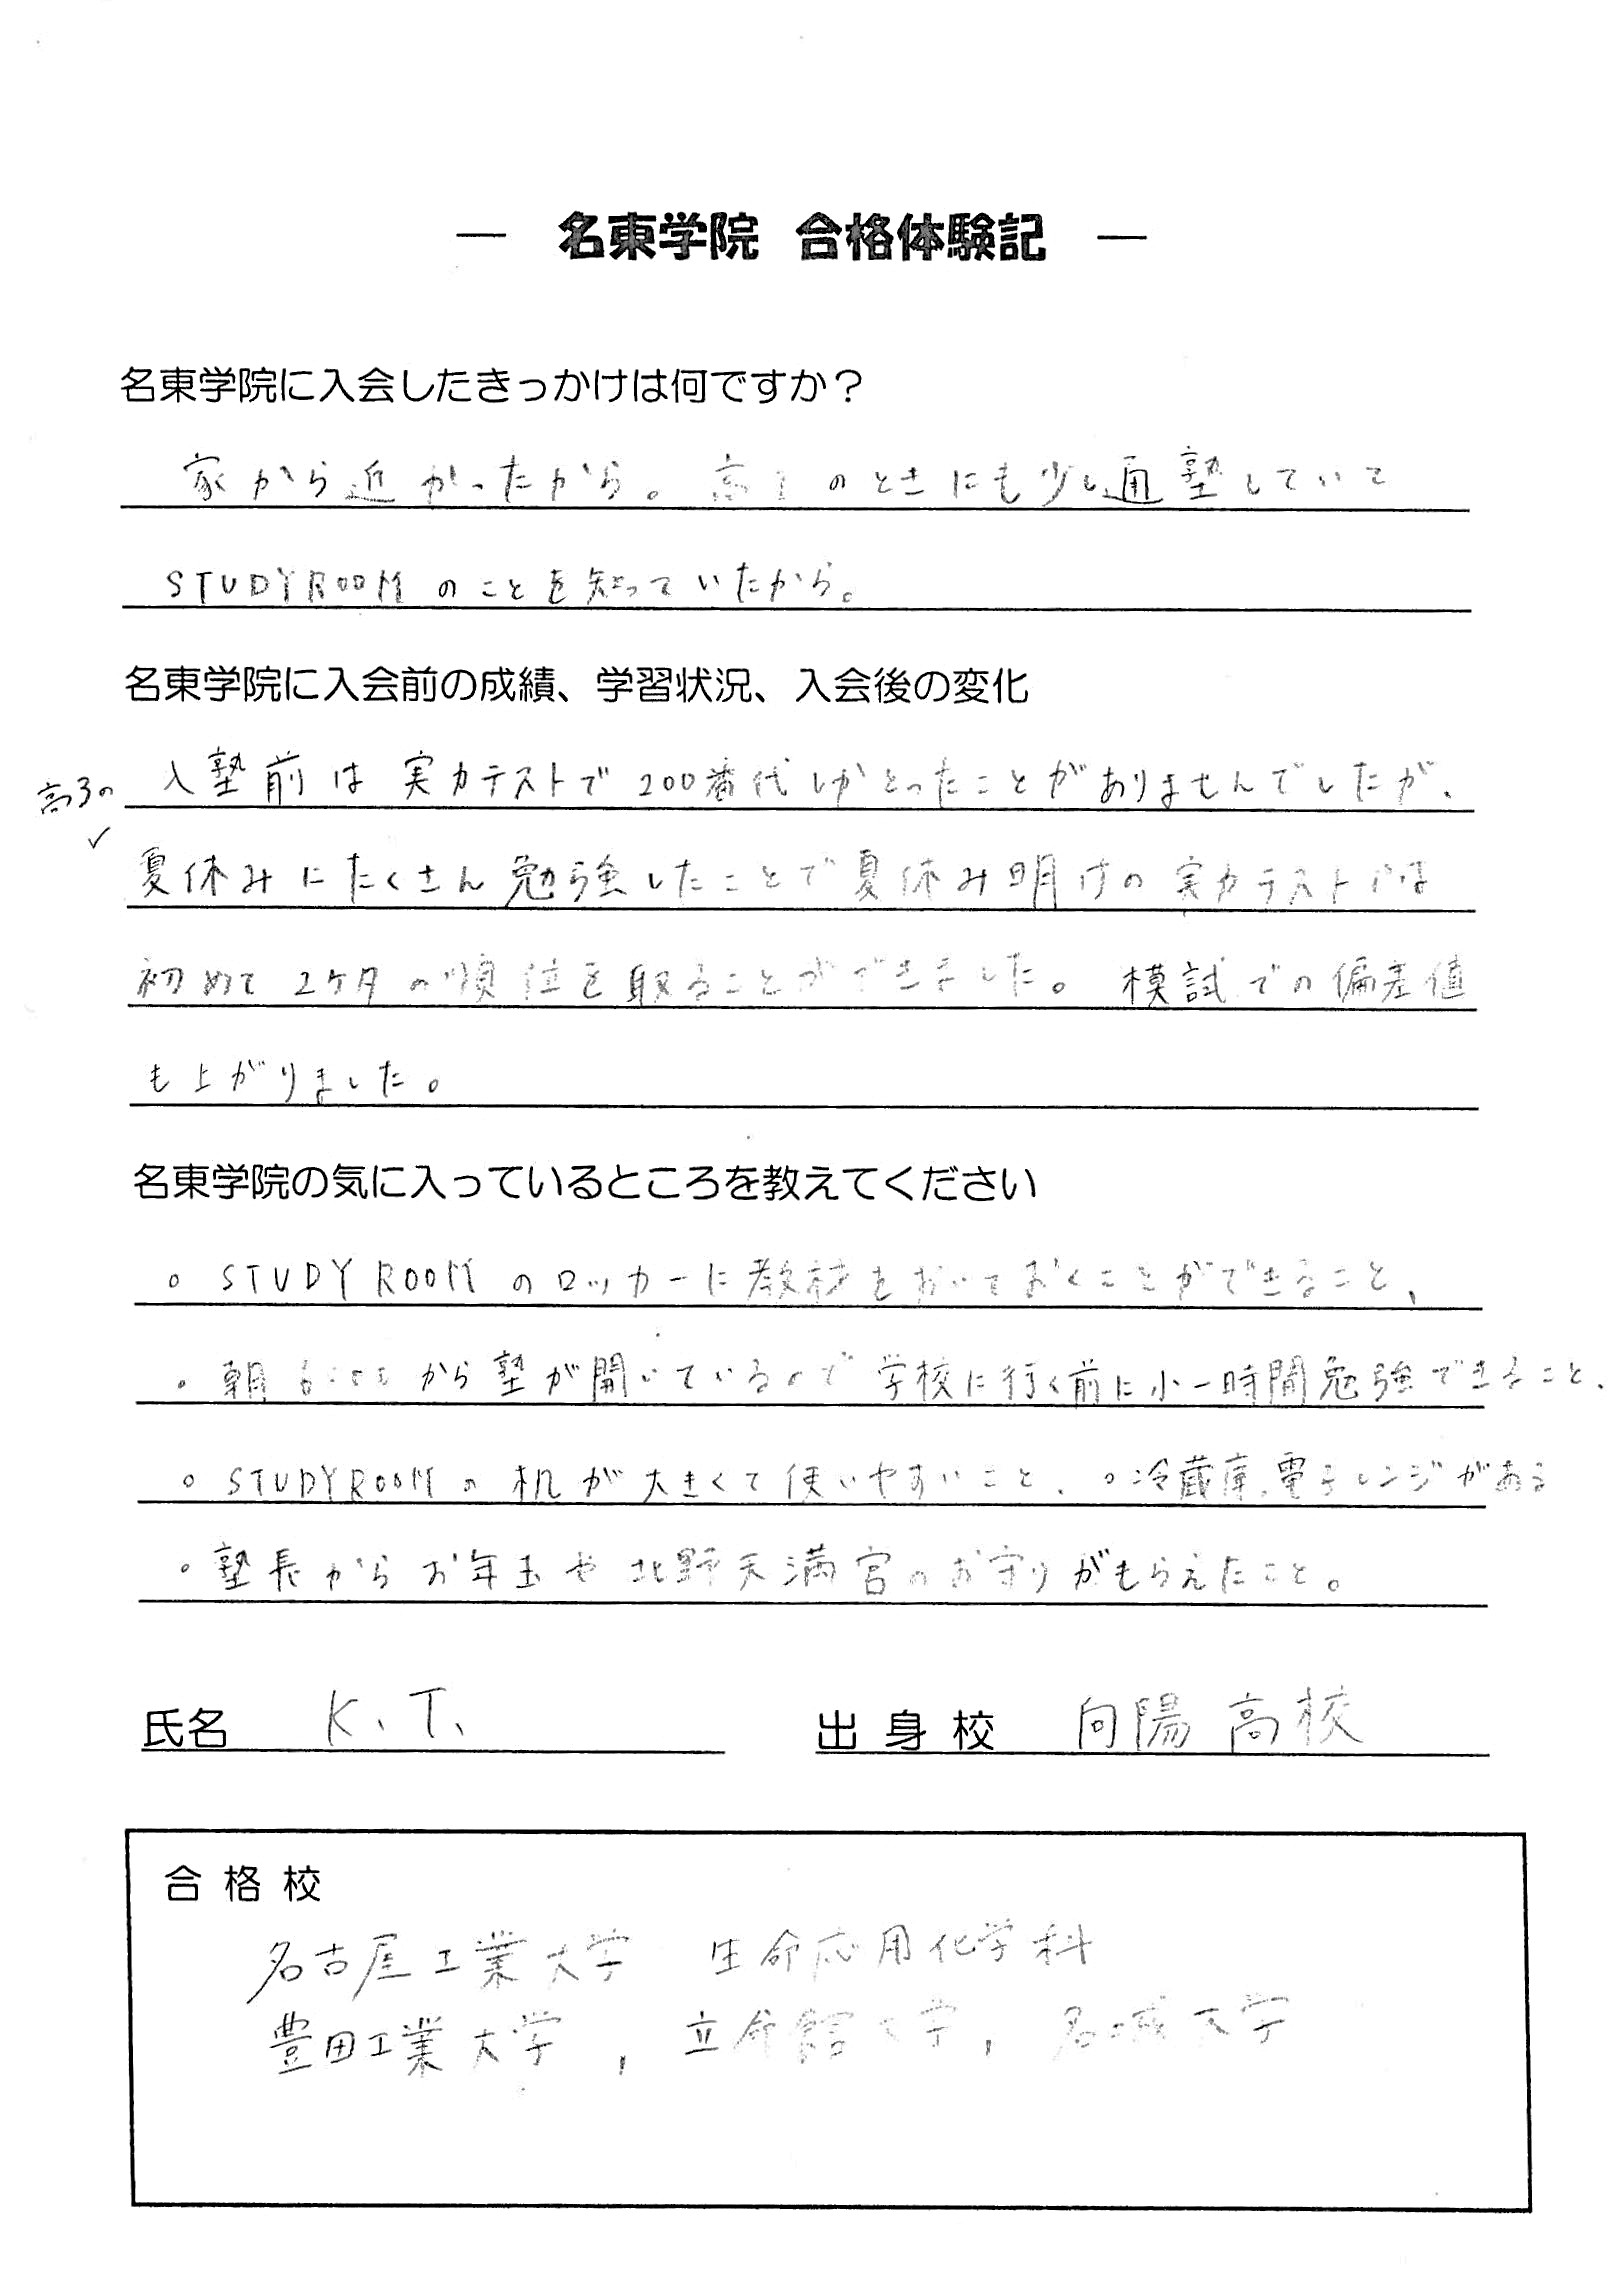 — 名東学院 合格体験記 —
名東学院に入会したきっかけは何ですか？
家から近かったから。高1のときにも少し通塾していて
STUDYROOMのことを知っていたから。
名東学院に入会前の成績、学習状況、入会後の変化
入塾前は実力テストで200番代しかとったことがありませんでしたが、
高3の
夏休みにたくさん勉強したことで夏休み明けの実力テストでは
初めて2ケタの順位を取ることができました。模試での偏差値
も上がりました。
名東学院の気に入っているところを教えてください
○ STUDY ROOMのロッカーに教材をおいておくことができること、
・朝 から塾が開いているので学校に行く前に小一時間勉強できること、
○ STUDYROOMの机が大きくて使いやすいこと、○冷蔵庫、電子レンジがある
・塾長からお年玉や北野天満宮のお守りがもらえたこと。
氏名 K、T、 出身校 向陽高校
合格校
名古屋工業大学 生命応用化学科
豊田工業大学, 立命館大学, 名城大学